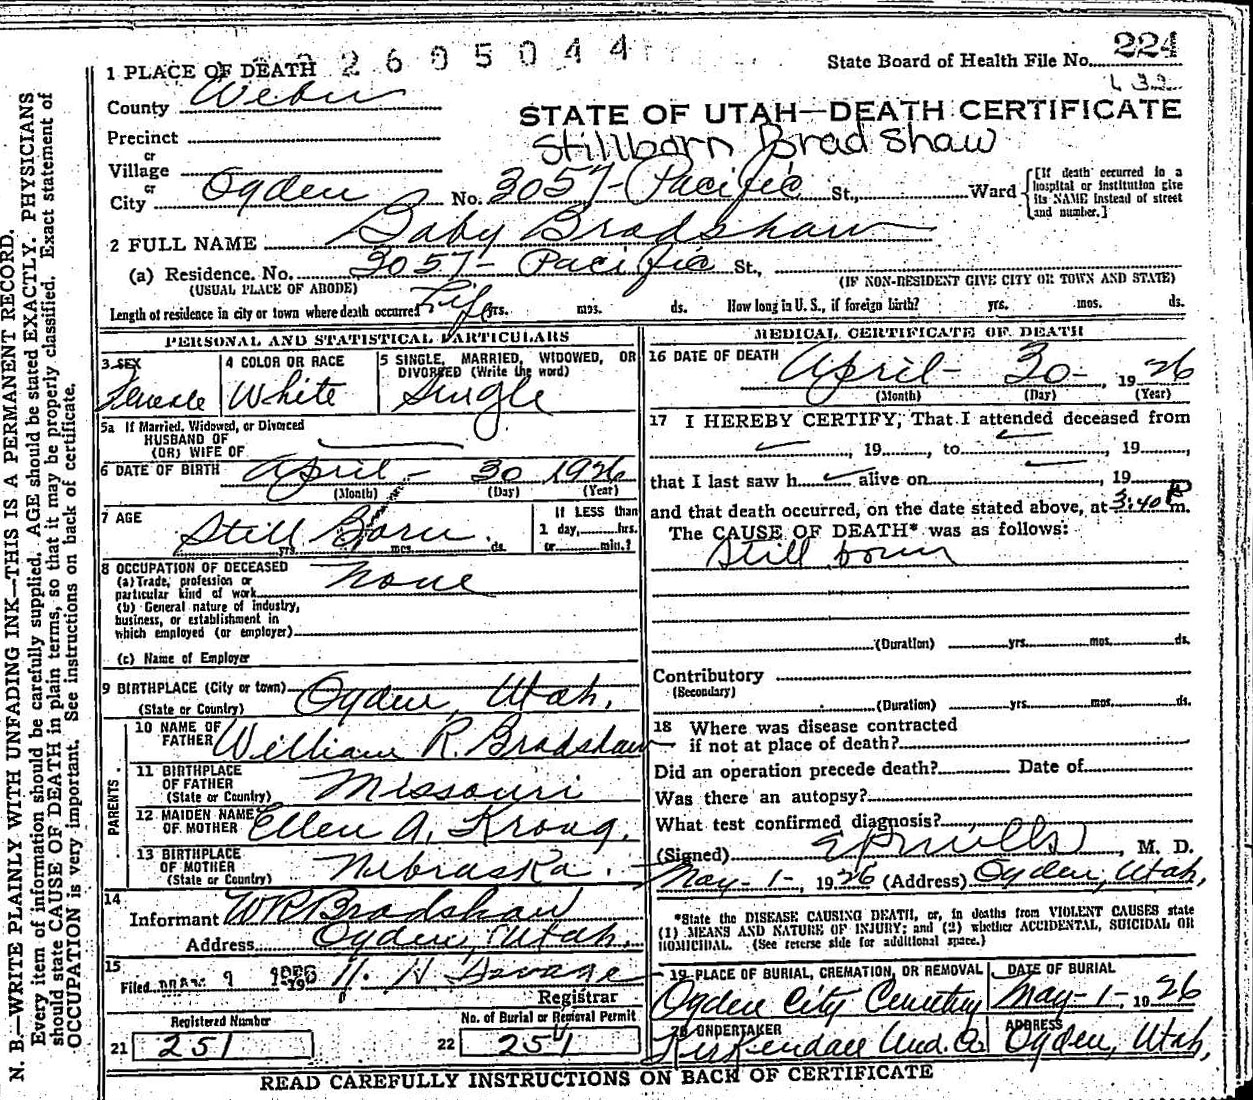 2605044
State Board of Health File No. 224
432
1 PLACE OF DEATH
County Weber
STATE OF UTAH—DEATH CERTIFICATE
Precinct
Stillborn Bradshaw
or
Village
or
City Ogden No. 3057- Pacific St., Ward
[If death occurred in a hospital or institution give its NAME instead of street and number.]
2 FULL NAME Baby Bradshaw
(a) Residence. No. 3057- Pacific St.,
(USUAL PLACE OF ABODE) (IF NON-RESIDENT GIVE CITY OR TOWN AND STATE)
Length of residence in city or town where death occurred Life yrs. mos. ds. How long in U. S., if foreign birth? yrs. mos. ds.
PERSONAL AND STATISTICAL PARTICULARS
3 SEX
Female
4 COLOR OR RACE
White
5 SINGLE, MARRIED, WIDOWED, OR
DIVORCED (Write the word)
Single
5a If Married, Widowed, or Divorced
HUSBAND OF
(OR) WIFE OF
6 DATE OF BIRTH April- 30 1926
(Month) (Day) (Year)
7 AGE
Still Born.
yrs. mos. ds.
If LESS than
1 day, hrs.
or min.?
8 OCCUPATION OF DECEASED
(a) Trade, profession or
particular kind of work none
(b) General nature of industry,
business, or establishment in
which employed (or employer)
(c) Name of Employer
9 BIRTHPLACE (City or town)
(State or Country) Ogden, Utah.
PARENTS
10 NAME OF
FATHER William R. Bradshaw
11 BIRTHPLACE
OF FATHER
(State or Country) Missouri
12 MAIDEN NAME
OF MOTHER Ellen A.
13 BIRTHPLACE
OF MOTHER
(State or Country) Nebraska.
14
Informant WR Bradshaw
Address Ogden, Utah.
15
Filed 9 H. H Savage
Registrar
Registered Number
21 251
No. of Burial or Removal Permit
22 251
MEDICAL CERTIFICATE OF DEATH
16 DATE OF DEATH
April- 30-, 1926
(Month) (Day) (Year)
17 I HEREBY CERTIFY, That I attended deceased from
, 19, to, 19,
that I last saw h alive on, 19
and that death occurred, on the date stated above, at 3:40 P m.
The CAUSE OF DEATH* was as follows:
Still born
(Duration) yrs. mos. ds.
Contributory
(Secondary)
(Duration) yrs. mos. ds.
18 Where was disease contracted
if not at place of death?
Did an operation precede death? Date of
Was there an autopsy?
What test confirmed diagnosis?
(Signed) E P Mills, M. D.
May-1-, 1926 (Address) Ogden, Utah,
*State the DISEASE CAUSING DEATH, or, in deaths from VIOLENT CAUSES state
(1) MEANS AND NATURE OF INJURY; and (2) whether ACCIDENTAL, SUICIDAL OR
HOMICIDAL. (See reverse side for additional space.)
19 PLACE OF BURIAL, CREMATION, OR REMOVAL
Ogden City Cemetery
DATE OF BURIAL
May-1-, 1926
20 UNDERTAKER
Kirkendall Und. Co.
ADDRESS
Ogden, Utah,
READ CAREFULLY INSTRUCTIONS ON BACK OF CERTIFICATE
N. B.—WRITE PLAINLY WITH UNFADING INK—THIS IS A PERMANENT RECORD.
Every item of information should be carefully supplied. AGE should be stated EXACTLY. PHYSICIANS
should state CAUSE OF DEATH in plain terms, so that it may be properly classified. Exact statement of
OCCUPATION is very important. See instructions on back of certificate.